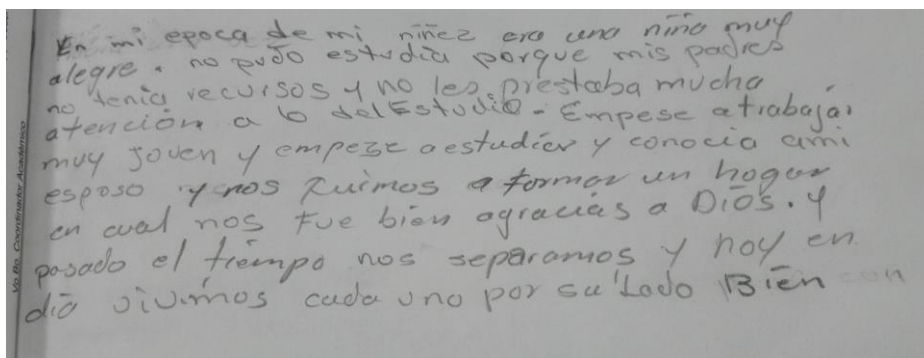 En mi epoca de mi niñez era una niña muy
alegre. no pudo estudia porque mis padres
no tenia recursos y no les prestaba mucha
atención a lo del Estudio - Empese a trabajar
muy joven y empese a estudiar y conocia ami
esposo y nos fuimos a formar un hogar
en cual nos fue bien agracias a Dios. y
pasado el tiempo nos separamos y hoy en
dia vivimos cada uno por su lado Bien con
Vo.Bo. Coordinador Académico